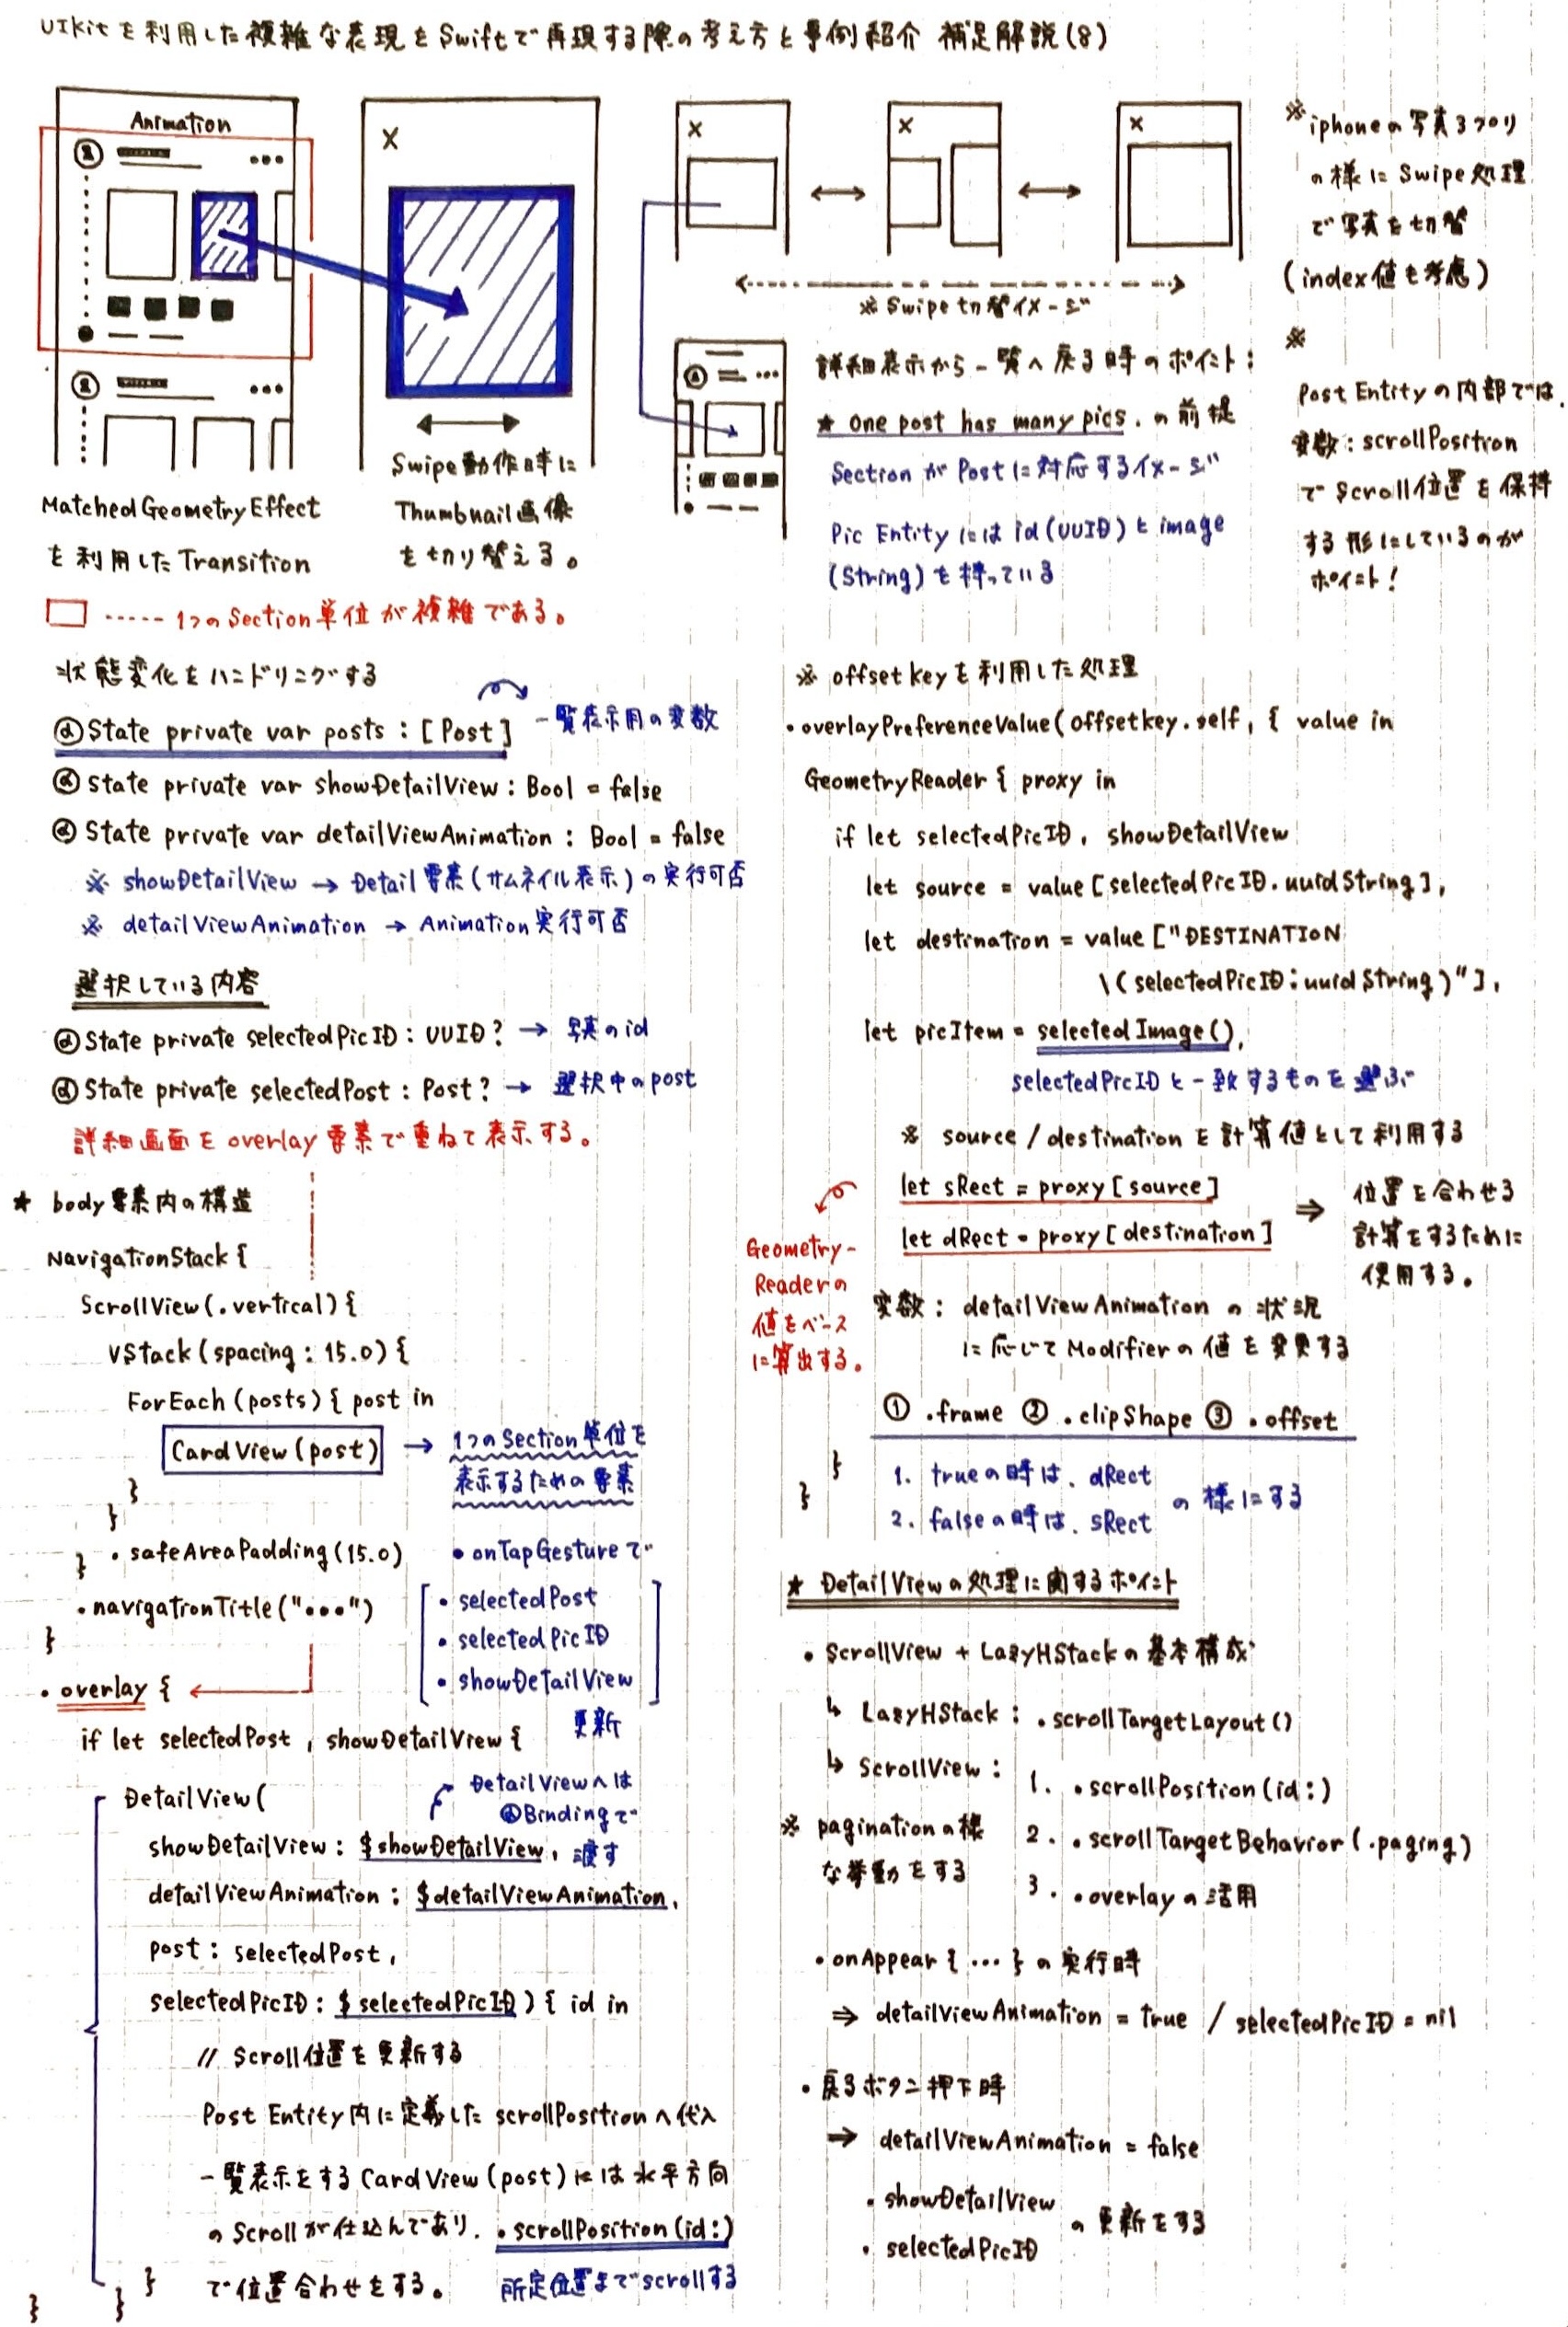 UIKitを利用した複雑な表現をSwiftで再現する際の考え方と事例紹介 補足解説(8)
Animation
MatchedGeometryEffect
を利用したTransition
×
Swipe動作時に
Thumbnail画像
を切り替える。
□ ----- 1つのSection単位が複雑である。
×
×
×
※Swipe切替イメージ
※iphoneの写真アプリ
の様にSwipe処理
で写真を切替
(index値も考慮)
詳細表示から一覧へ戻る時のポイント:
★ One post has many pics. の前提
SectionがPostに対応するイメージ
Pic Entityにはid(UUID)とimage
(String)を持っている
※
Post Entityの内部では、
変数:scrollPosition
でScroll位置を保持
する形にしているのが
ポイント!
状態変化をハンドリングする
@State private var posts : [Post]
一覧表示用の変数
@State private var showDetailView : Bool = false
@State private var detailViewAnimation : Bool = false
※ showDetailView → Detail要素(サムネイル表示)の実行可否
※ detailViewAnimation → Animation実行可否
選択している内容
@State private selectedPicID : UUID? → 写真のid
@State private selectedPost : Post? → 選択中のpost
詳細画面をoverlay要素で重ねて表示する。
★ body要素内の構造
NavigationStack {
ScrollView(.vertical) {
VStack(spacing : 15.0) {
ForEach(posts) { post in
CardView(post) → 1つのSection単位を
表示するための要素
}
}
} .safeAreaPadding(15.0)
.navigationTitle("•••")
}
•onTapGestureで
• selectedPost
• selectedPicID
• showDetailView
更新
.overlay {
if let selectedPost , showDetailView {
DetailView(
DetailViewへは
@Bindingで
渡す
showDetailView : $showDetailView,
detailViewAnimation : $detailViewAnimation,
post : selectedPost,
selectedPicID : $selectedPicID ) { id in
// Scroll位置を更新する
Post Entity内に定義したscrollPositionへ代入
一覧表示をするCardView(post)には水平方向
のScrollが仕込んであり、.scrollPosition(id:)
で位置合わせをする。
所定位置までscrollする
}
}
}
※ offsetkeyを利用した処理
.overlayPreferenceValue(Offsetkey.self, { value in
GeometryReader { proxy in
if let selectedPicID, showDetailView
let source = value[selectedPicID.uuidString],
let destination = value["DESTINATION
\(selectedPicID.uuidString)"],
let picItem = selectedImage(),
selectedPicIDと一致するものを選ぶ
※ source / destinationを計算値として利用する
let sRect = proxy[source]
let dRect = proxy[destination]
⇒ 位置を合わせる
計算をするために
使用する。
Geometry-
Readerの
値をベース
に算出する。
変数: detailViewAnimationの状況
に応じてModifierの値を変更する
① .frame ② .clipShape ③ .offset
1. trueの時は、dRect
2. falseの時は、sRect
の様にする
}
}
★ DetailViewの処理に関するポイント
• ScrollView + LazyHStackの基本構成
↳ LazyHStack : .scrollTargetLayout()
↳ ScrollView : 1. .scrollPosition(id:)
2. .scrollTargetBehavior(.paging)
3. .overlayの活用
※ paginationの様
な挙動をする
• onAppear { ••• } の実行時
⇒ detailViewAnimation = true / selectedPicID = nil
• 戻るボタン押下時
⇒ detailViewAnimation = false
• showDetailView
• selectedPicID
の更新をする